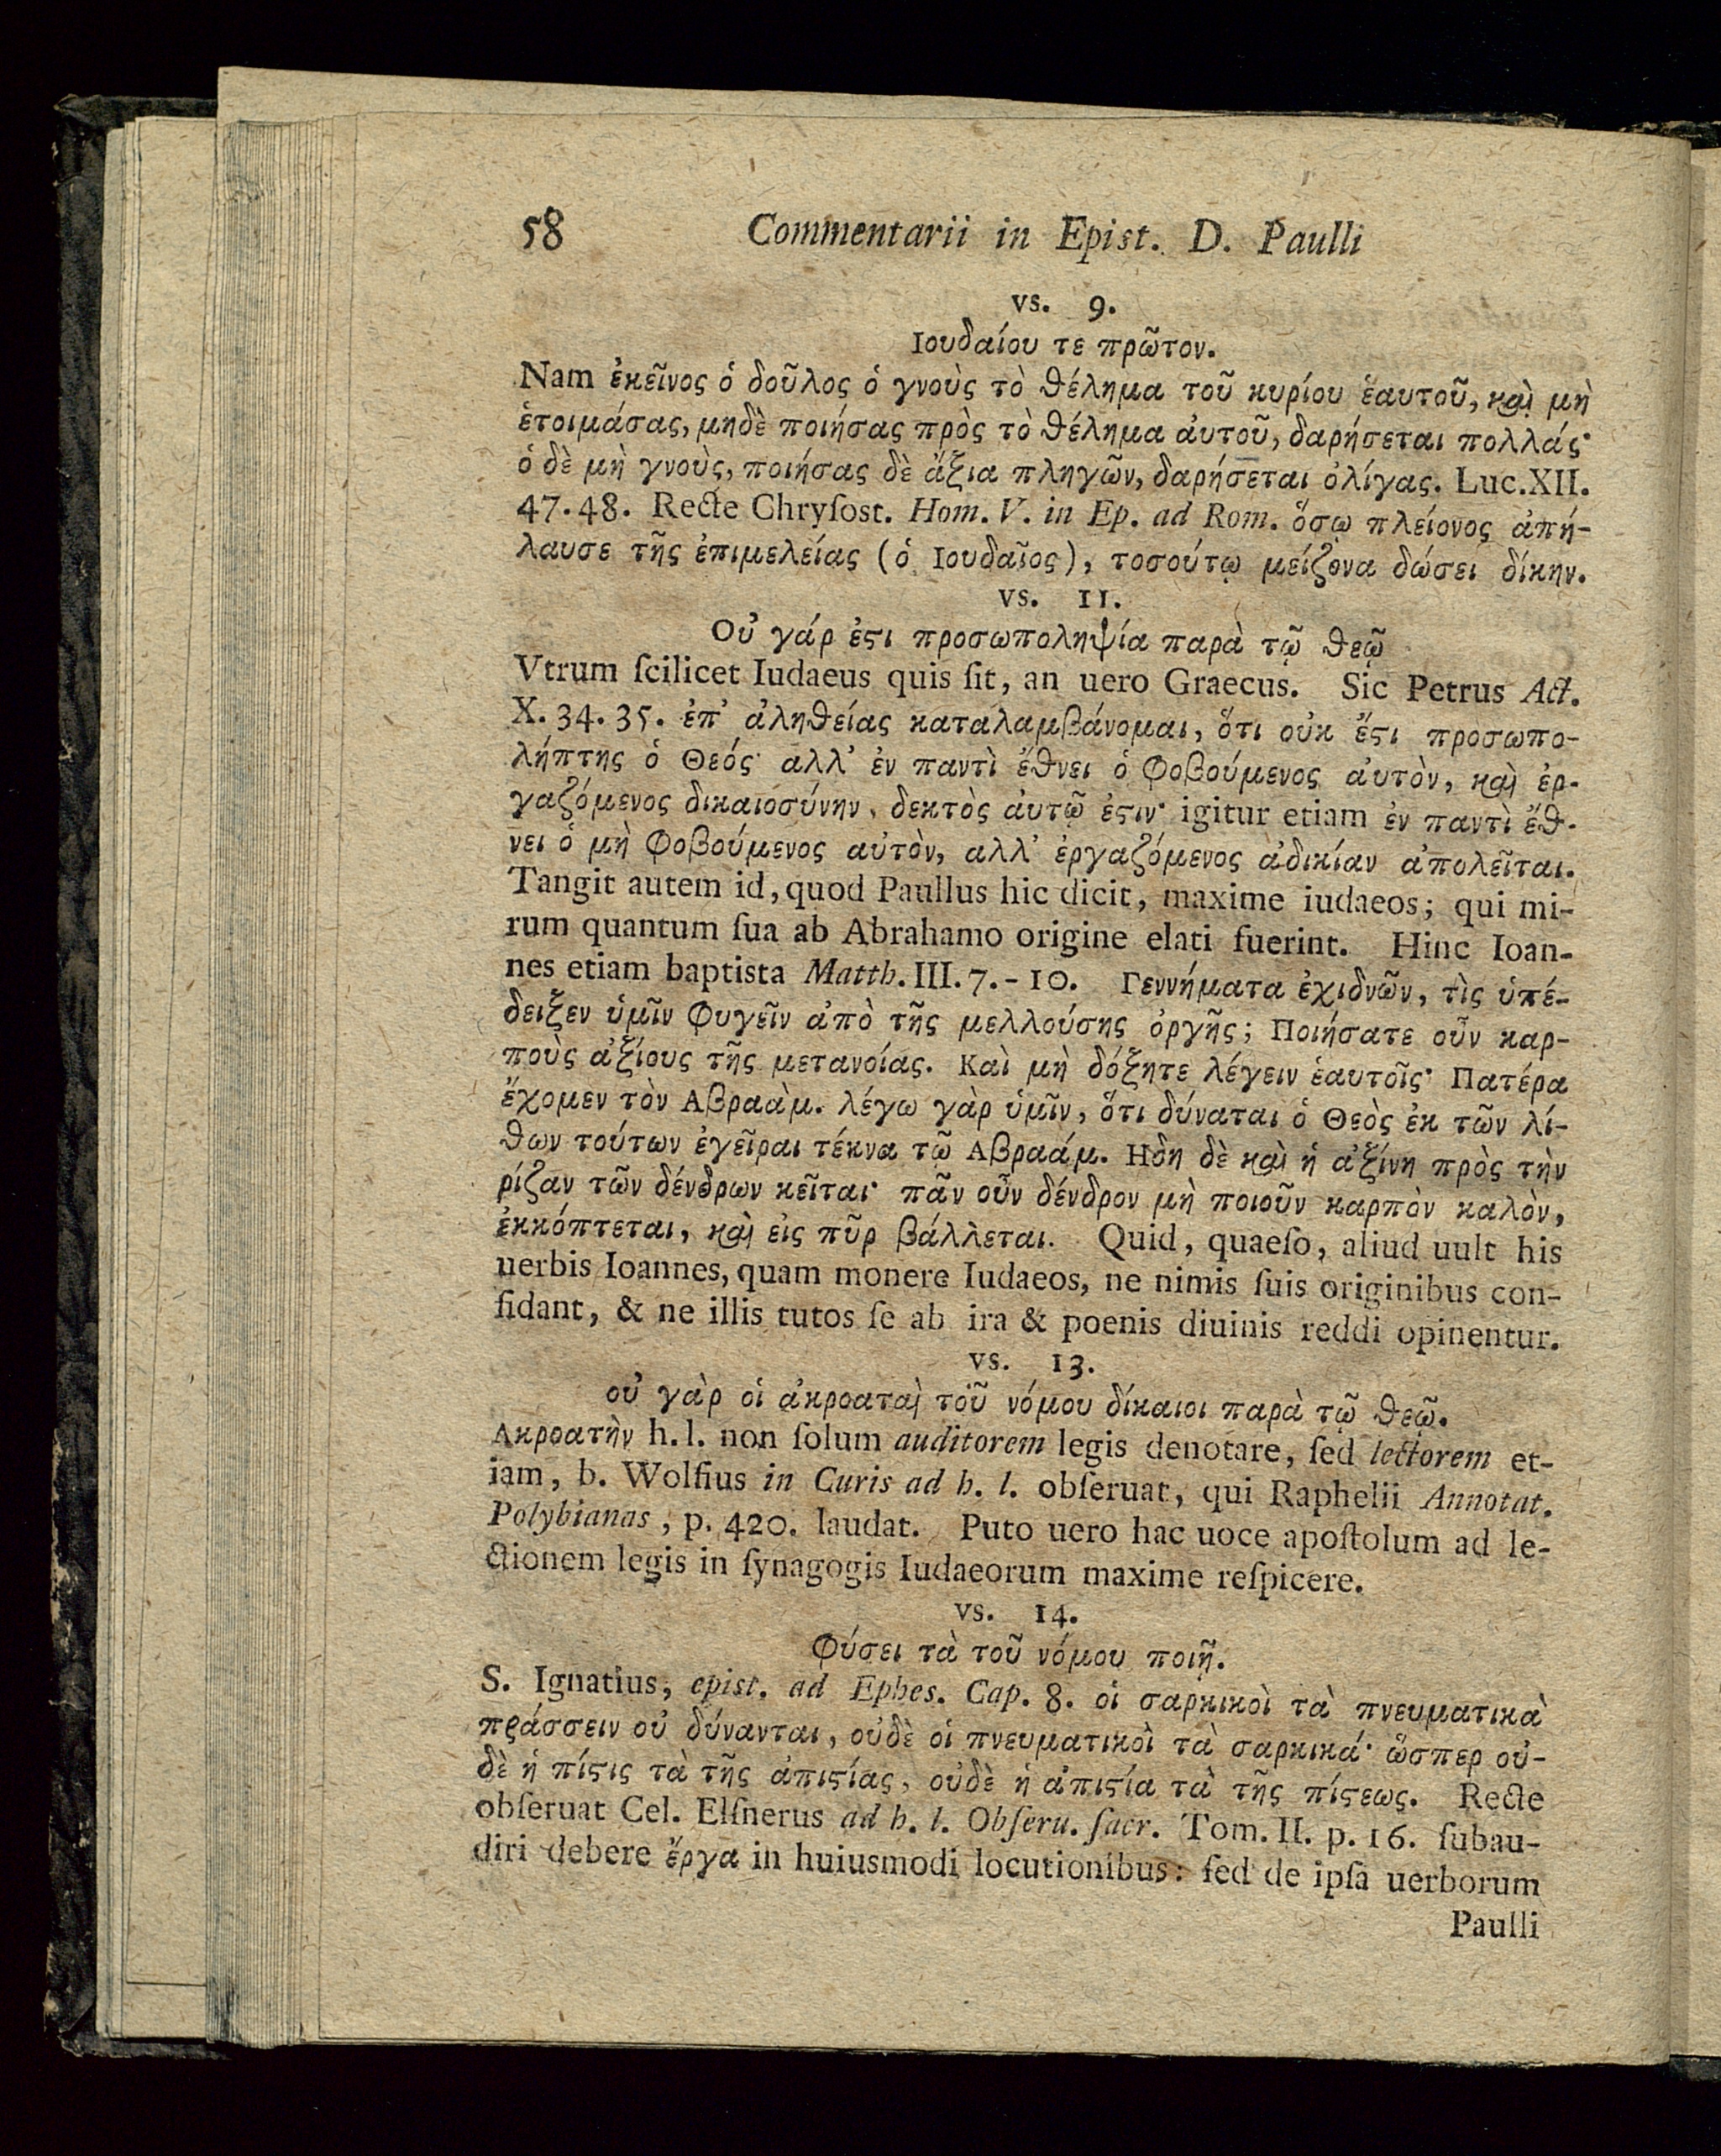 58 Commentarii in Epist. D. Paulli
vs. 9.
Ιουδαίου τε πρῶτον.
Nam ἐκεῖνος ὁ δοῦλος ὁ γνοὺς τὸ θέλημα τοῦ κυρίου ἑαυτοῦ, καὶ μὴ
ἑτοιμάσας, μηδὲ ποιήσας πρὸς τὸ θέλημα ἀυτοῦ, δαρήσεται πολλάς·
ὁ δὲ μὴ γνοὺς, ποιήσας δὲ ἄξια πληγῶν, δαρήσεται ὀλίγας. Luc.XII.
47.48. Recte Chryſost. Hom. V. in Ep. ad Rom. ὅσῳ πλείονος ἀπή-
λαυσε τῆς ἐπιμελείας (ὁ Ιουδαῖος), τοσούτῳ μείζονα δώσει δίκην.
vs. 11.
Οὐ γάρ ἐϛι προσωποληψία παρὰ τῷ θεῷ
Vtrum ſcilicet Iudaeus quis ſit, an uero Graecus. Sic Petrus Act.
X. 34. 35. ἐπ’ ἀληθείας καταλαμβάνομαι, ὅτι οὐκ ἔϛι προσωπο-
λήπτης ὁ Θεός· αλλ’ ἐν παντὶ ἔθνει ὁ φοβούμενος ἀυτὸν, καὶ ἐρ-
γαζόμενος δικαιοσύνην, δεκτὸς ἀυτῷ ἐϛιν· igitur etiam ἐν παντὶ ἔθ-
νει ὁ μὴ φοβούμενος αὐτὸν, αλλ’ ἐργαζόμενος ἀδικίαν ἀπολεῖται.
Tangit autem id, quod Paullus hic dicit, maxime iudaeos; qui mi-
rum quantum ſua ab Abrahamo origine elati fuerint. Hinc Ioan-
nes etiam baptista Matth. III. 7. - 10. Γεννήματα ἐχιδνῶν, τὶς ὑπέ-
δειξεν ὑμῖν φυγεῖν ἀπὸ τῆς μελλούσης ὀργῆς; Ποιήσατε οὖν καρ-
ποὺς ἀξίους τῆς μετανοίας. Καὶ μὴ δόξητε λέγειν ἑαυτοῖς· Πατέρα
ἔχομεν τὸν Αβραὰμ. λέγω γὰρ ὑμῖν, ὅτι δύναται ὁ Θεὸς ἐκ τῶν λί-
θων τούτων ἐγεῖραι τέκνα τῷ Αβραάμ. Ηδη δὲ καὶ ἡ ἀξίνη πρὸς τὴν
ρίζαν τῶν δένδρων κεῖται· πᾶν οὖν δένδρον μὴ ποιοῦν καρπὸν καλὸν,
ἐκκόπτεται, καὶ ἐις πῦρ βάλλεται. Quid, quaeſo, aliud uult his
uerbis Ioannes, quam monere Iudaeos, ne nimis ſuis originibus con-
fidant, & ne illis tutos ſe ab ira & poenis diuinis reddi opinentur.
vs. 13.
οὐ γὰρ οἱ ἀκροαταὶ τοῦ νόμου δίκαιοι παρὰ τῷ θεῷ.
Ακροατὴν h. l. non ſolum auditorem legis denotare, ſed lectorem et-
iam, b. Wolfius in Curis ad h. l. obſeruat, qui Raphelii Annotat.
Polybianas, p. 420. laudat. Puto uero hac uoce apoſtolum ad le-
ctionem legis in ſynagogis Iudaeorum maxime reſpicere.
vs. 14.
φύσει τὰ τοῦ νόμου ποιῇ.
S. Ignatius, epist. ad Ephes. Cap. 8. οἱ σαρκικοὶ τὰ πνευματικὰ
πράσσειν οὐ δύνανται, οὐδὲ οἱ πνευματικοὶ τὰ σαρκικά· ὥσπερ οὐ-
δὲ ἡ πίϛις τὰ τῆς ἀπιϛίας, οὐδὲ ἡ ἀπιϛία τὰ τῆς πίϛεως. Recte
obſeruat Cel. Elſnerus ad h. l. Obſeru. ſacr. Tom. II. p. 16. ſubau-
diri debere ἔργα in huiusmodi locutionibus: ſed de ipſa uerborum
Paulli